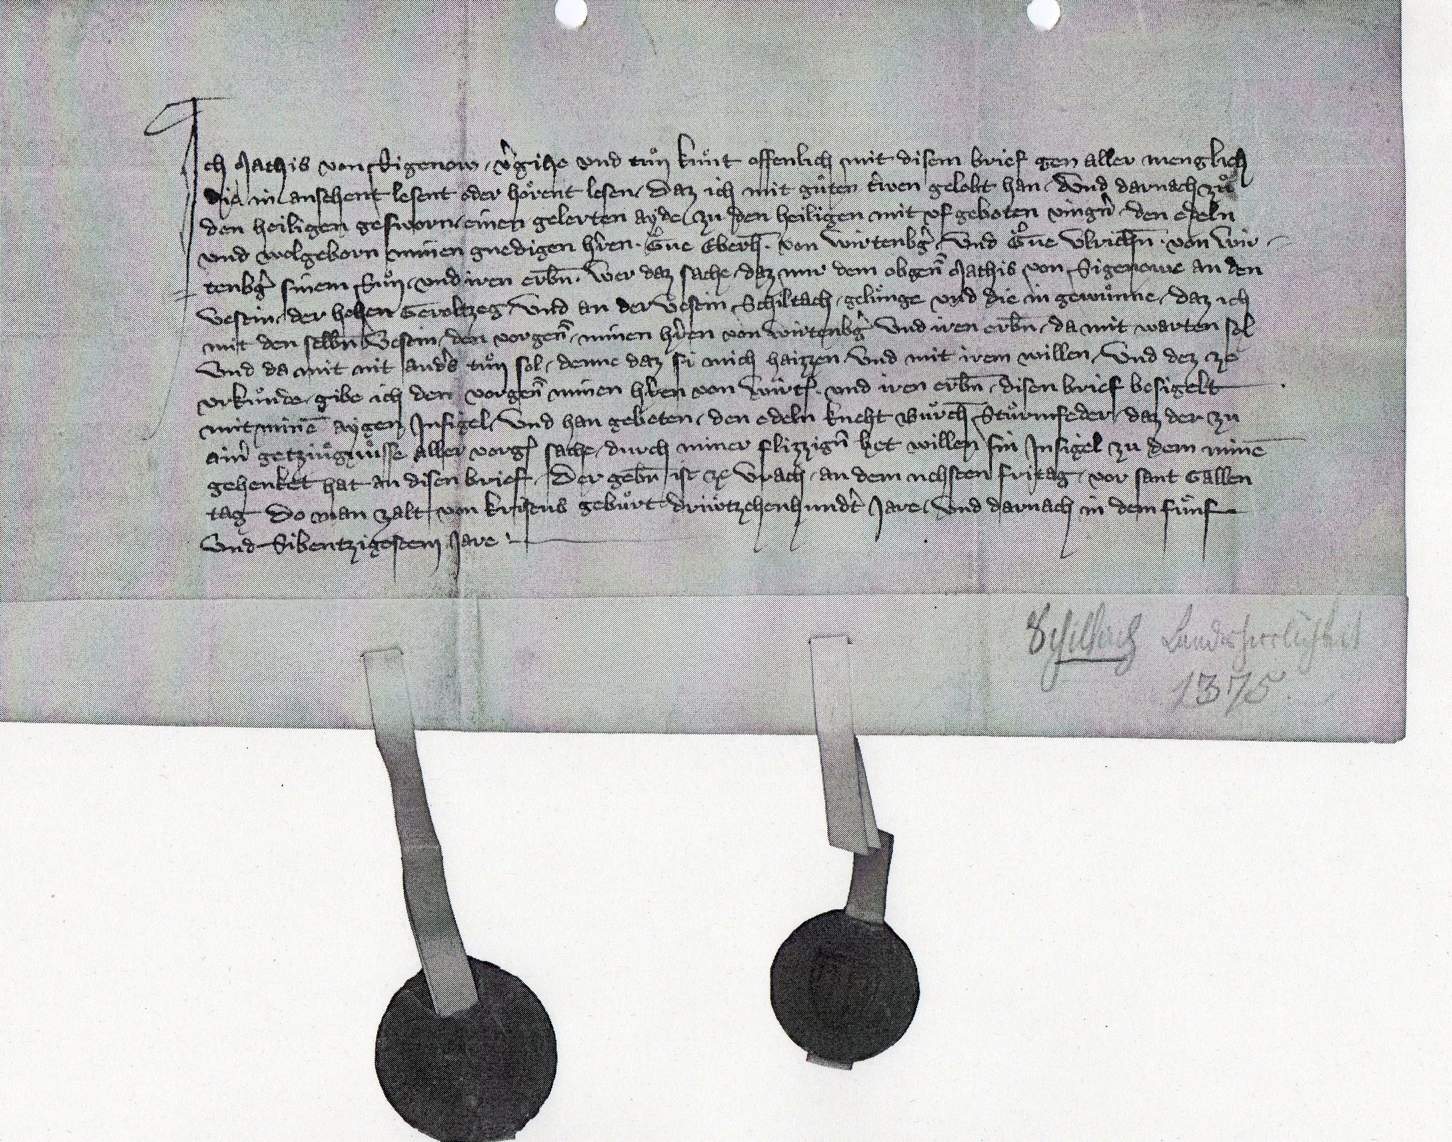 Ich Mathis von Sigenow, v̾gihe vnd tuͦn kuͥnt offenlich mit disem brief gen aller menglich
die in ansehent lesent oder hoͤrent lesen, Daz ich mit guͦten triwen gelobt han, Vnd darnach zuͦ
den heiligen gesworn, einen gelerten ayde, zu den heiligen mit vf geboten vingn̄, den edeln
vnd wolgeborn minen gnedigen h̾ren, Eberh̄, von Wirtenbg̾, Vnd Vlrichn̄, von Wir-
tenbg̾ sinem Suͦn, vnd iren erbn̄, Wer daz sache, daz mir dem obgen̄ Mathis von Sigenowe an den
Vestin, der hohen Geroltzeg, Vnd an der Vestin, Schiltach, geluͥnge vnd die in gewuͥnne, daz ich
mit den selbn̄ Vestin, den vorgen̄, minen h̾ren von Wirtenbg̾ Vnd iren erbn̄, da mit warten sol
Vnd da mit nit and̾s tuͦn sol, denne daz si mich haizzen Vnd mit irem willen, Vnd dez ze
vrkuͥnde, gibe ich den vorgen̄ minen h̾ren von Wirt̾, vnd iren erbn̄, disen brief besigelt
mit minē aygen Insigel, Vnd han gebeten, den edeln kneht Burch̄ Stuͥrmfeder, daz der zu
ain̾ getzuͥgnuͥsse aller vorg̾ sache, durch miner flizzign̄ bet willen sin Insigel zu dem minē
gehenket hat an disen brief, Der gebn̄ ist ze Vrach, an dem nehsten fritag, vor sant Gallen
tag Do man zalt von kristus gebuͥrt driuͥtzehenhundt̾ Jare, Vnd darnach in dem fuͥnf
Vnd Sibentzigestem Jare
Schiltach Landesherrlichkeit
1375.